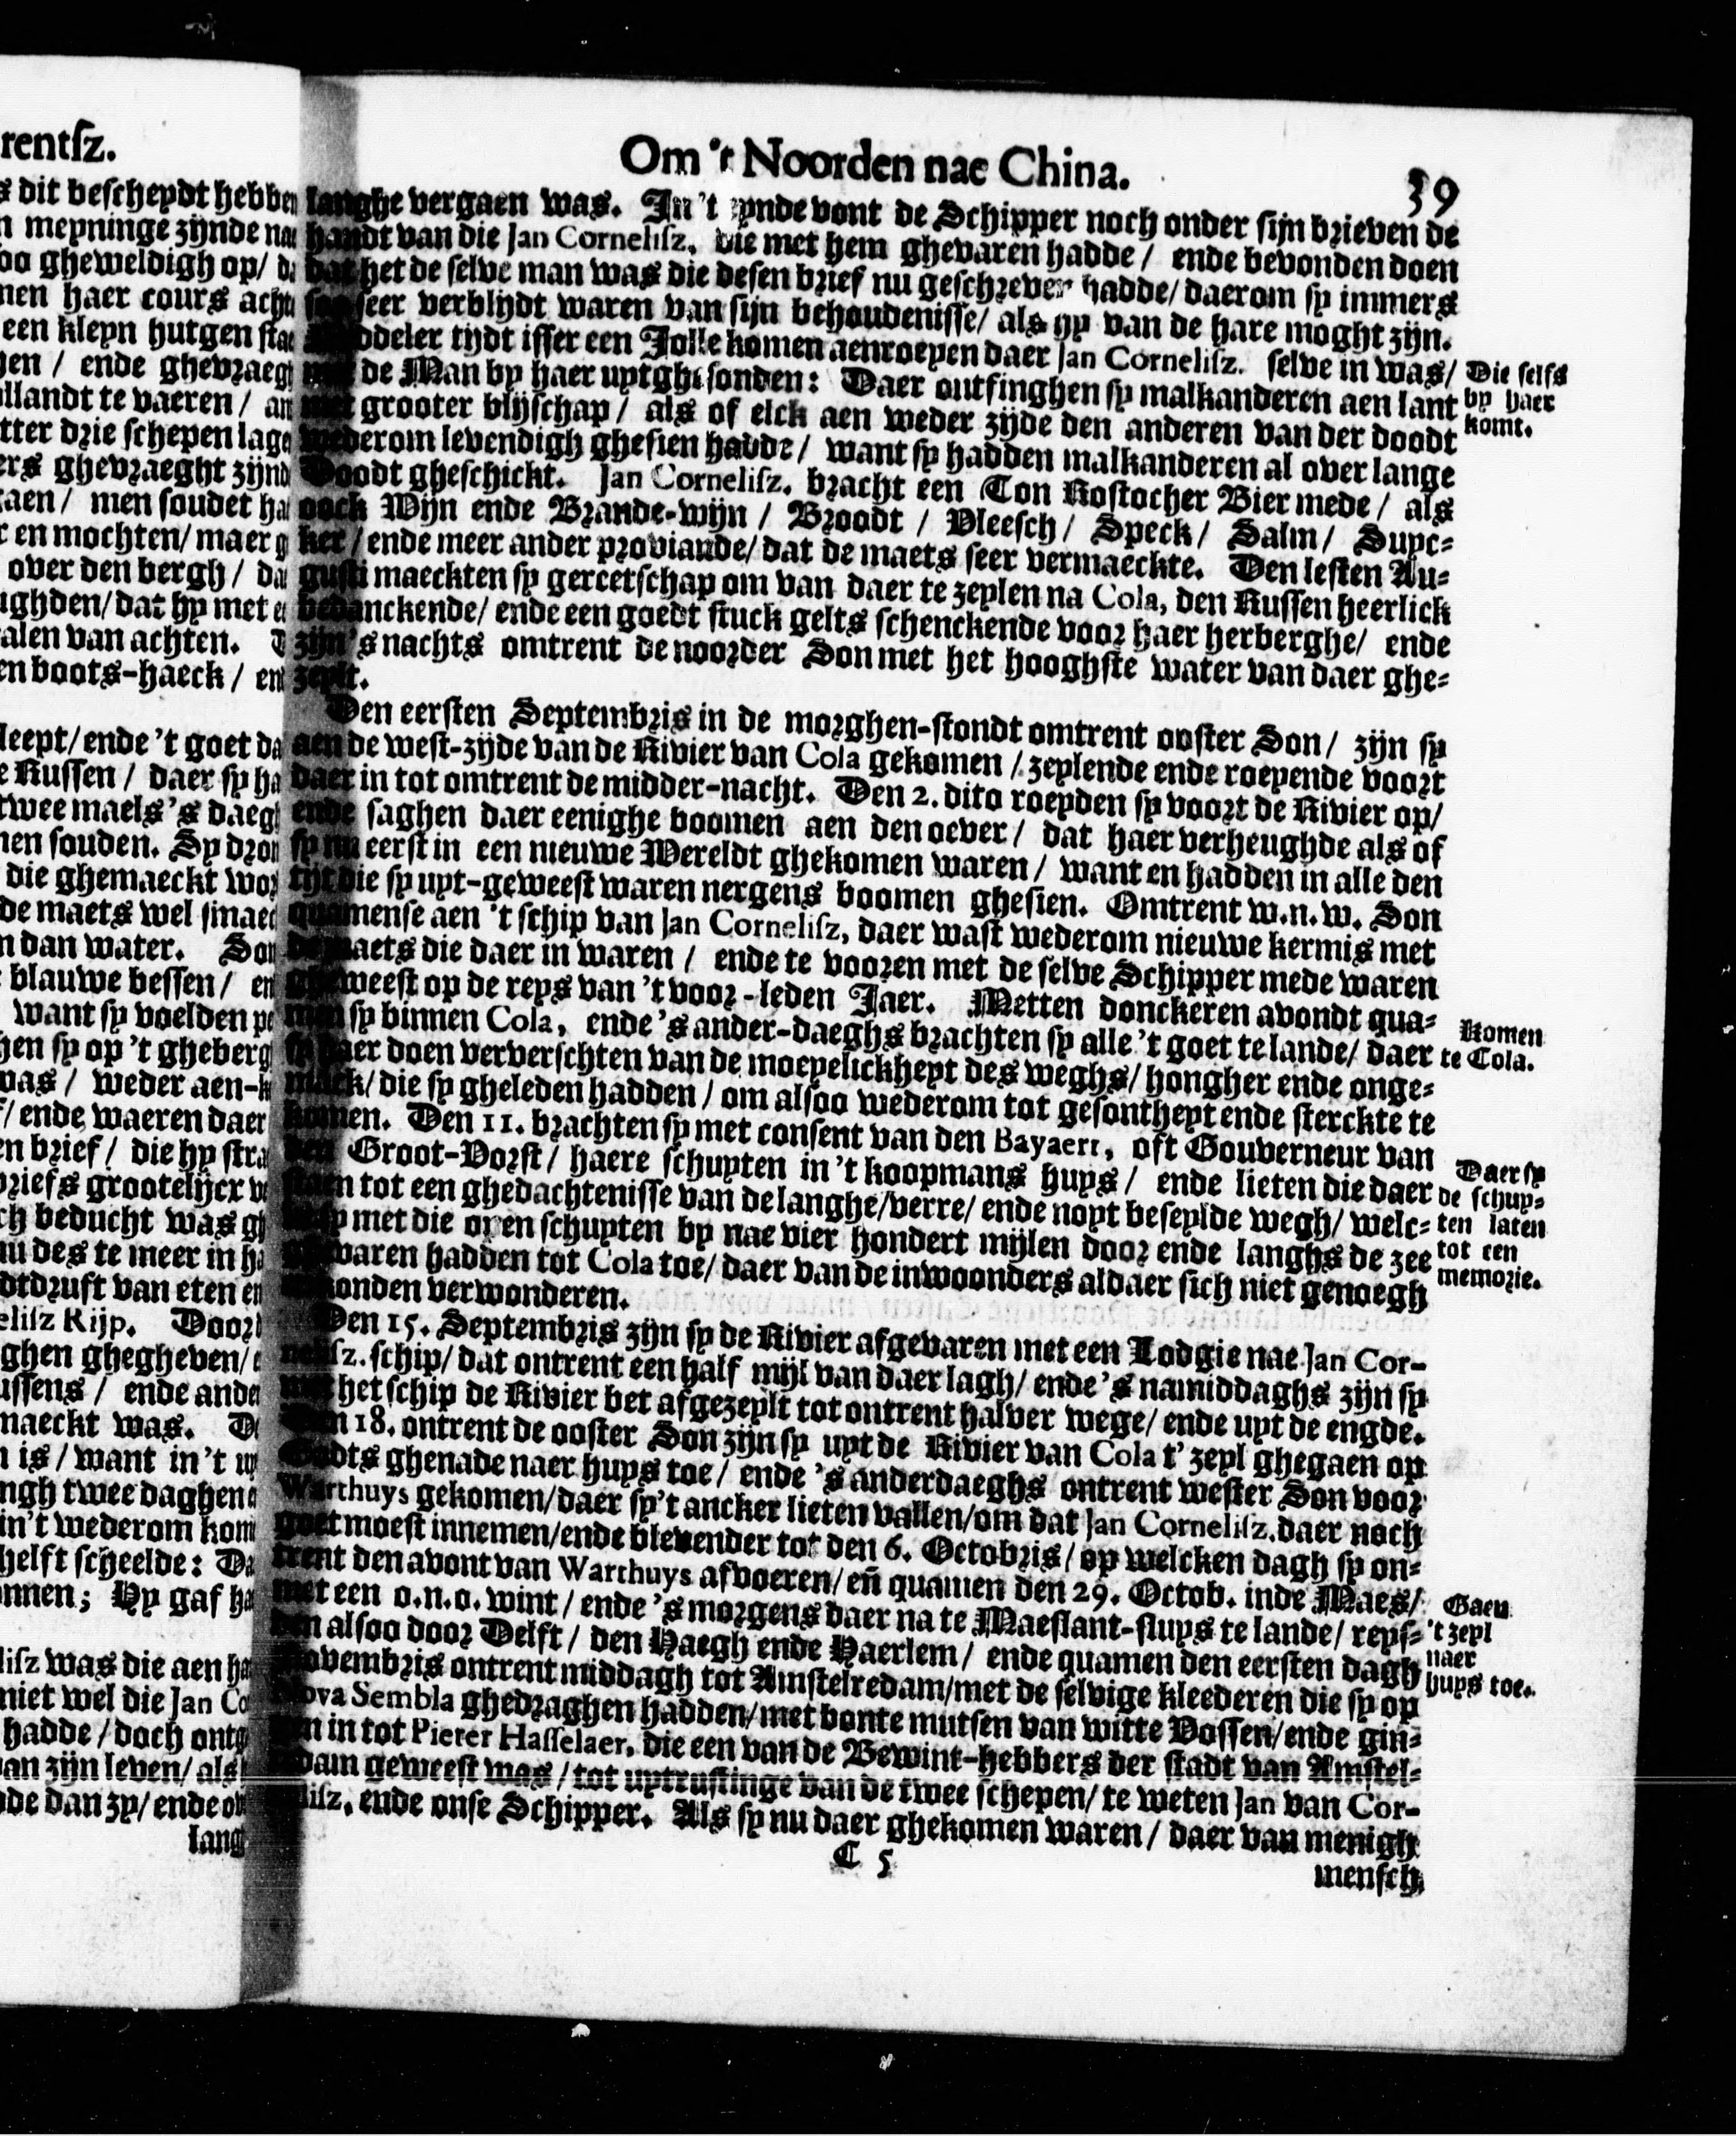 rentſz.
s dit beſcheydt hebben
n meyninge zijnde na
oo gheweldigh op/
nen haer cours
een kleyn hutgen
en / ende
llandt te vaeren /
tter drie ſchepen
ers ghevraeght
aen/ men ſoudet
r en mochten/ maer
over den bergh/
ughden/dat hy met
alen van achten.
en boots-haeck /
leept/ende 't goet
e Ruſſen / daer ſy
twee maels 's
nen ſouden. Sy
die ghemaeckt
de maets wel
n dan water.
blauwe beſſen /
want ſy voelden
hen ſy op 't
was / weder
/ ende waeren daer
en brief / die hy
briefs grootelijcr
ch beducht was
nu des te meer in
van eten
eliſz Rijp. Door
ghen ghegheven/
uſſens / ende
maeckt was.
n is / want in 't
ngh twee daghen
in 't wederom
helft ſcheelde:
nnen; Hy gaf
liſz was die aen
niet wel die Jan
hadde / doch
van zijn leven/ als
de dan zy/ ende
lang
Om 't Noorden nae China. 39
langhe vergaen was. In 't eynde vont de Schipper noch onder ſijn brieven de
handt van die Jan Corneliſz. die met hem ghevaren hadde / ende bevonden doen
dat het de ſelve man was die deſen brief nu geſchreven hadde/ daerom ſy immers
ſoo ſeer verblijdt waren van ſijn behoudeniſſe/ als hy van de hare moght zijn.
Middeler tijdt iſſer een Jolle komen aenroeyen daer Jan Corneliſz. ſelve in was/
met de Man by haer uytgheſonden: Daer ontfinghen ſy malkanderen aen lant
met grooter blijſchap / als of elck aen weder zijde den anderen van der doodt
wederom levendigh gheſien hadde / want ſy hadden malkanderen al over lange
Doodt gheſchickt. Jan Corneliſz. bracht een Ton Roſtocher Bier mede / als
oock Wijn ende Brande-wijn / Broodt / Vleeſch / Speck / Salm / Suyc-
ker / ende meer ander proviande/ dat de maets ſeer vermaeckte. Den leſten Au-
guſti maeckten ſy gereetſchap om van daer te zeylen na Cola, den Ruſſen heerlick
bedanckende/ ende een goedt ſtuck gelts ſchenckende voor haer herberghe/ ende
zijn 's nachts omtrent de noorder Son met het hooghſte water van daer ghe-
zeylt.
Den eerſten Septembris in de morghen-ſtondt omtrent ooſter Son / zijn ſy
aen de weſt-zijde van de Rivier van Cola gekomen / zeylende ende roeyende voort
daer in tot omtrent de midder-nacht. Den 2. dito roeyden ſy voort de Rivier op/
ende ſaghen daer eenighe boomen aen den oever / dat haer verheughde als of
ſy nu eerſt in een nieuwe Wereldt ghekomen waren / want en hadden in alle den
tijt die ſy uyt-geweeſt waren nergens boomen gheſien. Omtrent w.n.w. Son
quamenſe aen 't ſchip van Jan Corneliſz, daer waſt wederom nieuwe kermis met
de maets die daer in waren / ende te vooren met de ſelve Schipper mede waren
gheweeſt op de reys van 't voor-leden Jaer. Metten donckeren avondt qua-
men ſy binnen Cola, ende 's ander-daeghs brachten ſy alle 't goet te lande/ daer
ſy daer doen ververſchten van de moeyelickheyt des weghs/ hongher ende onge-
mack/ die ſy gheleden hadden / om alſoo wederom tot geſontheyt ende ſterckte te
komen. Den 11. brachten ſy met conſent van den Bayaert, oft Gouverneur van
den Groot-Vorſt / haere ſchuyten in 't koopmans huys / ende lieten die daer
ſtaen tot een ghedachteniſſe van de langhe/verre/ ende noyt beſeylde wegh/ welc-
ke ſy met die open ſchuyten by nae vier hondert mijlen door ende langhs de zee
gevaren hadden tot Cola toe/ daer van de inwoonders aldaer ſich niet genoegh
konden verwonderen.
Den 15. Septembris zijn ſy de Rivier afgevaren met een Lodgie nae Jan Cor-
neliſz. ſchip/ dat ontrent een half mijl van daer lagh/ ende 's namiddaghs zijn ſy
met het ſchip de Rivier bet afgezeylt tot ontrent halver wege/ ende uyt de engde.
Den 18. ontrent de ooſter Son zijn ſy uyt de Rivier van Cola t' zeyl ghegaen op
Godts ghenade naer huys toe / ende 's anderdaeghs ontrent weſter Son voor
Warthuys gekomen/daer ſy 't ancker lieten vallen/om dat Jan Corneliſz. daer noch
goet moeſt innemen/ende blevender tot den 6. Octobris / op welcken dagh ſy on-
trent den avont van Warthuys afvoeren/ en̄ quamen den 29. Octob. inde Maes/
met een o.n.o. wint / ende 's morgens daer na te Maeſlant-ſluys te lande/ reyſ-
den alſoo door Delft / den Haegh ende Haerlem / ende quamen den eerſten dagh
Novembris ontrent middagh tot Amſtelredam/met de ſelvige kleederen die ſy op
Nova Sembla ghedraghen hadden/met bonte mutſen van witte Voſſen/ende gin-
gen in tot Pieter Haſſelaer, die een van de Bewint-hebbers der ſtadt van Amſtel-
dam geweeſt was / tot uytruſtinge van de twee ſchepen/ te weten Jan van Cor-
neliſz, ende onſe Schipper. Als ſy nu daer ghekomen waren / daer van menigh
C 5
menſch
Die ſelfs
by haer
komt.
Komen
te Cola.
Daer ſy
de ſchuy-
ten laten
tot een
memorie.
Gaen
't zeyl
naer
huys toe.